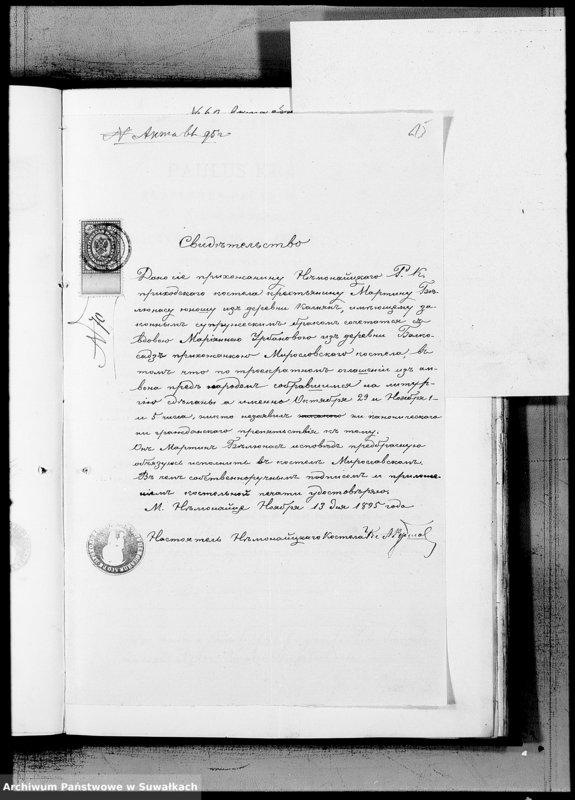 № Акта 61 95г
45
№ 70
Свидѣтельство
Дано сіе прихожанину Нѣмонайцкаго Р. К.
приходскаго костела крестьянину Мартину Бѣ-
люнасу юношу изъ деревни Калнян, имѣющему за-
коннымъ супружескимъ бракомъ сочетатся съ
вдовою Маріанною Урбановою изъ деревни
прихожанкою Мирославскаго костела въ
томъ что по троекратномъ оглашеніи изъ ам-
вона предъ народомъ собравшимся на литур-
гію сдѣланы а именно Октября 29 и Ноября 1-
и 5 числа, никто незаявилъ ни каноническаго
ни гражданскаго препятствія къ тому.
Онъ Мартинъ Бѣлюнасъ исповѣдь предбрачную
обязуюсь исполнить въ костелѣ Мирославскомъ.
Въ чемъ собственноручнымъ подписомъ и приложе-
ніемъ костельной печати удостовѣряю.
М. Нѣмонайце Ноября 13 дня 1895 года
Настоятель Нѣмонайцкаго Костела Кс. А.
Archiwum Państwowe w Suwałkach